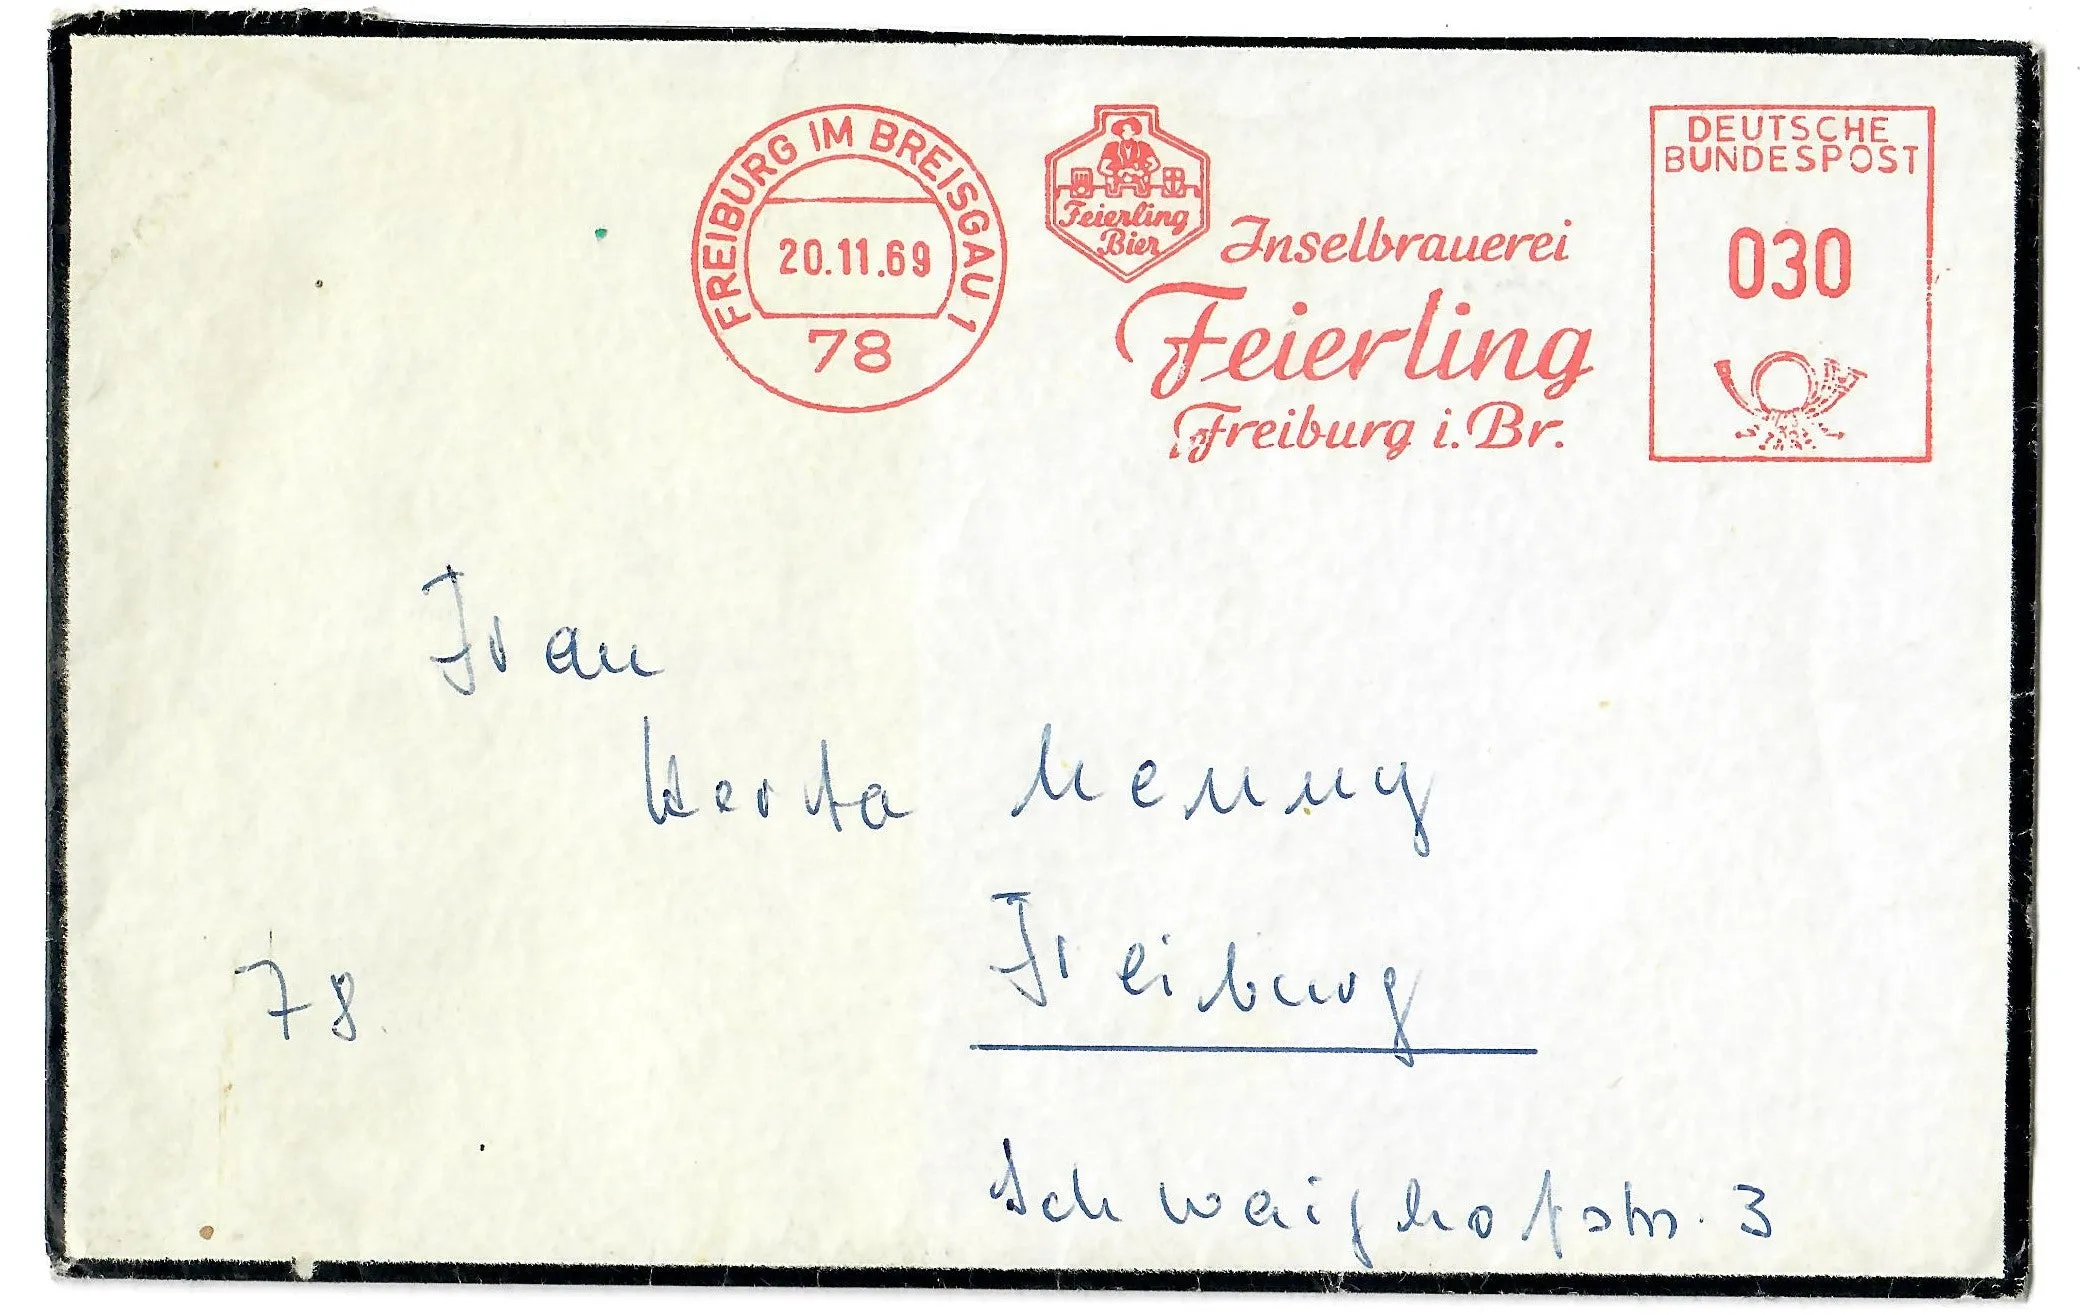 FREIBURG IM BREISGAU 1
20.11.69
78
Feierling
Bier
Inselbrauerei
Feierling
Freiburg i. Br.
DEUTSCHE
BUNDESPOST
030
Frau
Herta Menny
Freiburg
78
Schwaighofstr. 3